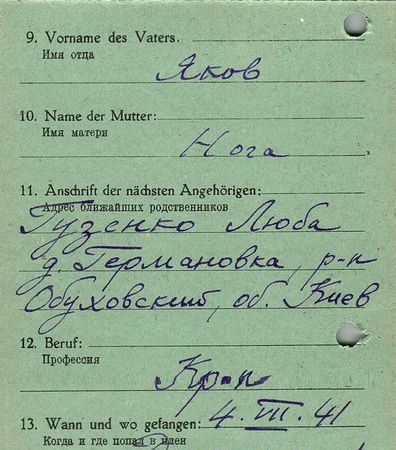 9. Vorname des Vaters.
Имя отца
Яков
10. Name der Mutter:
Имя матери
Нога
11. Anschrift der nächsten Angehörigen:
Адрес ближайших родственников
Гузенко Люба
д. Германовка, р-н
Обуховский, об. Киев
12. Beruf:
Профессия
Кр-н
13. Wann und wo gefangen: 4. III. 41
Когда и где попал в плен